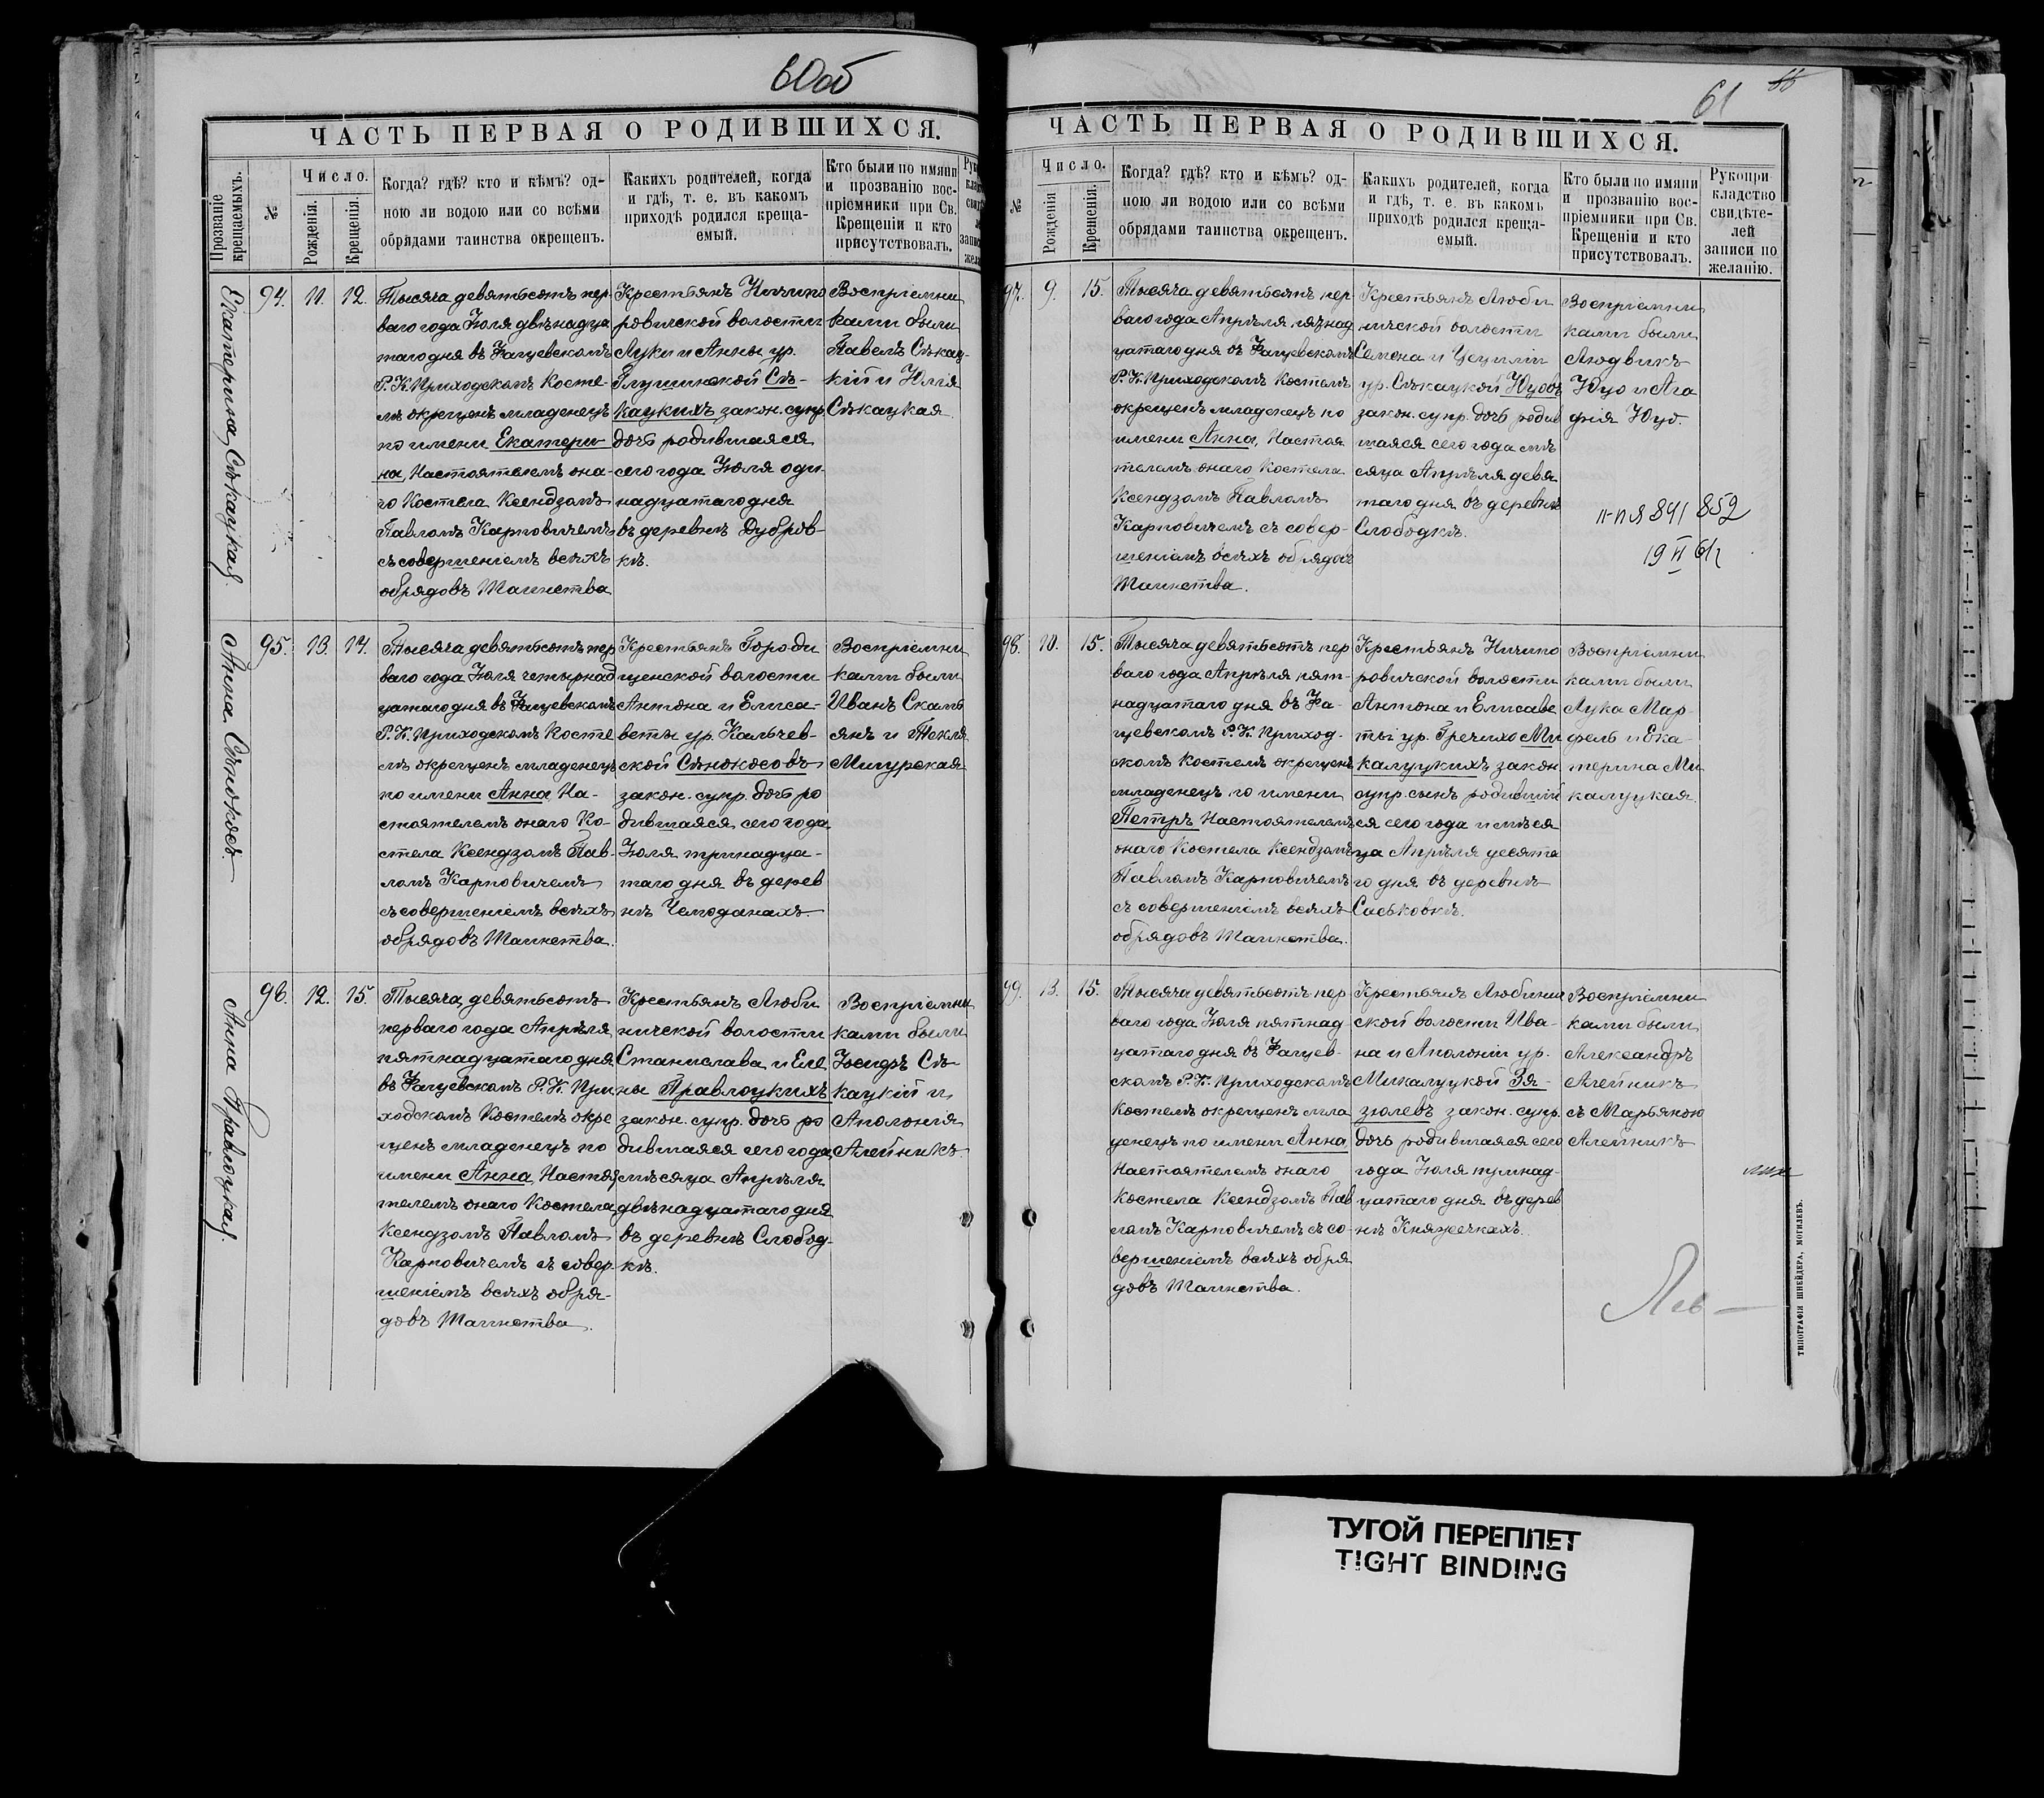 60об
ЧАСТЬ ПЕРВАЯ О РОДИВШИХСЯ.
Прозваніе крещаемыхъ.
№
Число.
Рожденія.
Крещенія.
Когда? гдѣ? кто и кѣмъ? од-
ною ли водою или со всѣми
обрядами таинства окрещенъ.
Какихъ родителей, когда
и гдѣ, т. е. въ какомъ
приходѣ родился креща-
емый.
Кто были по имяни
и прозванію вос-
пріемники при Св.
Крещеніи и кто
присутствовалъ.
Екатерина Сѣкацкая
94. 11. 12.
Тысяча девятьсотъ пер-
ваго года Іюля двѣнадца
таго дня въ Фащевскомъ
Р.К. Приходскомъ Косте-
лѣ окрещенъ младенецъ
по имени Екатери-
на, Настоятелемъ она-
го Костела Ксендзомъ
Павломъ Карповичемъ
съ совершеніемъ всѣхъ
обрядовъ Таинства
Крестьянъ Ничипо
ровичской волости
Луки и Анны ур.
Глушинской Сѣ-
кацкихъ закон. супр.
дочь родившаяся
сего года Іюля оди-
надцатаго дня
въ деревнѣ Дубров-
кѣ.
Воспріемни
ками были
Павелъ Сѣкац-
кій и Юлія
Сѣкацкая
Анна Сѣнокосъ.
95. 13. 14.
Тысяча девятьсотъ пер
ваго года Іюля четырнад
цатаго дня въ Фащевскомъ
Р.К. Приходскомъ Косте
лѣ окрещенъ младенецъ
по имени Анна На-
стоятелемъ онаго Ко-
стела Ксендзомъ Пав-
ломъ Карповичемъ
съ совершеніемъ всѣхъ
обрядовъ Таинства.
Крестьянъ Городи
щенской волости
Антона и Елиса-
веты ур. Кольчев-
ской Сѣнокосовъ
закон. супр. дочь ро
дившаяся сего года
Іюля тринадца-
таго дня въ дерев
нѣ Чемоданахъ
Воспріемни
ками были
Иванъ Скаль
янъ и Текля
Мигурская
Анна Правлоцкая.
96. 12. 15.
Тысяча девятьсотъ
перваго года Апрѣля
пятнадцатаго дня
въ Фащевскомъ Р.К. При
ходскомъ Костелѣ окре
щенъ младенецъ по
имени Анна, Настоя
телемъ онаго Костела
Ксендзомъ Павломъ
Карповичемъ съ совер-
шеніемъ всѣхъ обря-
довъ Таинства.
Крестьянъ Люби
ничской волости
Станислава и Еле
ны Правлоцкихъ
закон. супр. дочь ро
дившаяся сего года
мѣсяца Апрѣля
двѣнадцатаго дня
въ деревнѣ Слобод-
кѣ.
Воспріемни
ками были
Іосифъ Сѣ
кацкій и
Аполонія
Алейникъ.
61
ЧАСТЬ ПЕРВАЯ О РОДИВШИХСЯ.
№
Число.
Рожденія
Крещенія.
Когда? гдѣ? кто и кѣмъ? од-
ною ли водою или со всѣми
обрядами таинства окрещенъ.
Какихъ родителей, когда
и гдѣ, т. е. въ какомъ
приходѣ родился креща-
емый.
Кто были по имяни
и прозванію вос-
пріемники при Св.
Крещеніи и кто
присутствовалъ.
Рукопри-
кладство
свидѣте-
лей
записи по
желанію.
97. 9. 15.
Тысяча девятьсотъ пер-
ваго года Апрѣля пятнад
цатаго дня въ Фащевскомъ
Р.К. Приходскомъ Костелѣ
окрещенъ младенецъ по
имени Анна, Настоя
телемъ онаго Костела
Ксендзомъ Павломъ
Карповичемъ съ совер-
шеніемъ всѣхъ обрядовъ
Таинства.
Крестьянъ Люби
ничской волости
Семена и Цециліи
ур. Сѣкацкой Юцовъ
закон. супр. дочь родив
шаяся сего года мѣ
сяца Апрѣля девя
таго дня въ деревнѣ
Слободкѣ.
Воспріемни
ками были
Людвикъ
Юцо и Ага
фія Юцо.
841 852
19 VI 61г
98. 10. 15.
Тысяча девятьсотъ пер
ваго года Апрѣля пят-
надцатаго дня въ Фа-
щевскомъ Р.К. Приход-
скомъ Костелѣ окрещенъ
младенецъ по имени
Петръ Настоятелемъ
онаго Костела Ксендзомъ
Павломъ Карповичемъ
съ совершеніемъ всѣхъ
обрядовъ Таинства.
Крестьянъ Ничипо
ровичской волости
Антона и Елисаве
ты ур. Гречихо Ми
калуцкихъ закон
супр. сынъ родивший
ся сего года и мѣся
ца Апрѣля десята
го дня въ деревнѣ
Саськовкѣ.
Воспріемни
ками были
Лука Мар-
фель и Ека-
терина Ми
калуцкая.
99. 13. 15.
Тысяча девятьсотъ пер
ваго года Іюля пятнад
цатаго дня въ Фащев-
скомъ Р.К. Приходскомъ
Костелѣ окрещенъ мла
денецъ по имени Анна
Настоятелемъ онаго
Костела Ксендзомъ Пав
ломъ Карповичемъ съ со-
вершеніемъ всѣхъ обря
довъ Таинства.
Крестьянъ Любинич
ской волости Ива-
на и Аполоніи ур.
Микалуцкой Зя-
зюлевъ закон. супр.
дочь родившаяся сего
года Іюля тринад-
цатаго дня въ дерев
нѣ Княжечкахъ.
Воспріемни
ками были
Александръ
Алейникъ
съ Марьяною
Алейникъ
ТИПОГРАФІЯ ШНЕЙДЕРА, МОГИЛЕВЪ.
ТУГОЙ ПЕРЕПЛЕТ
TIGHT BINDING